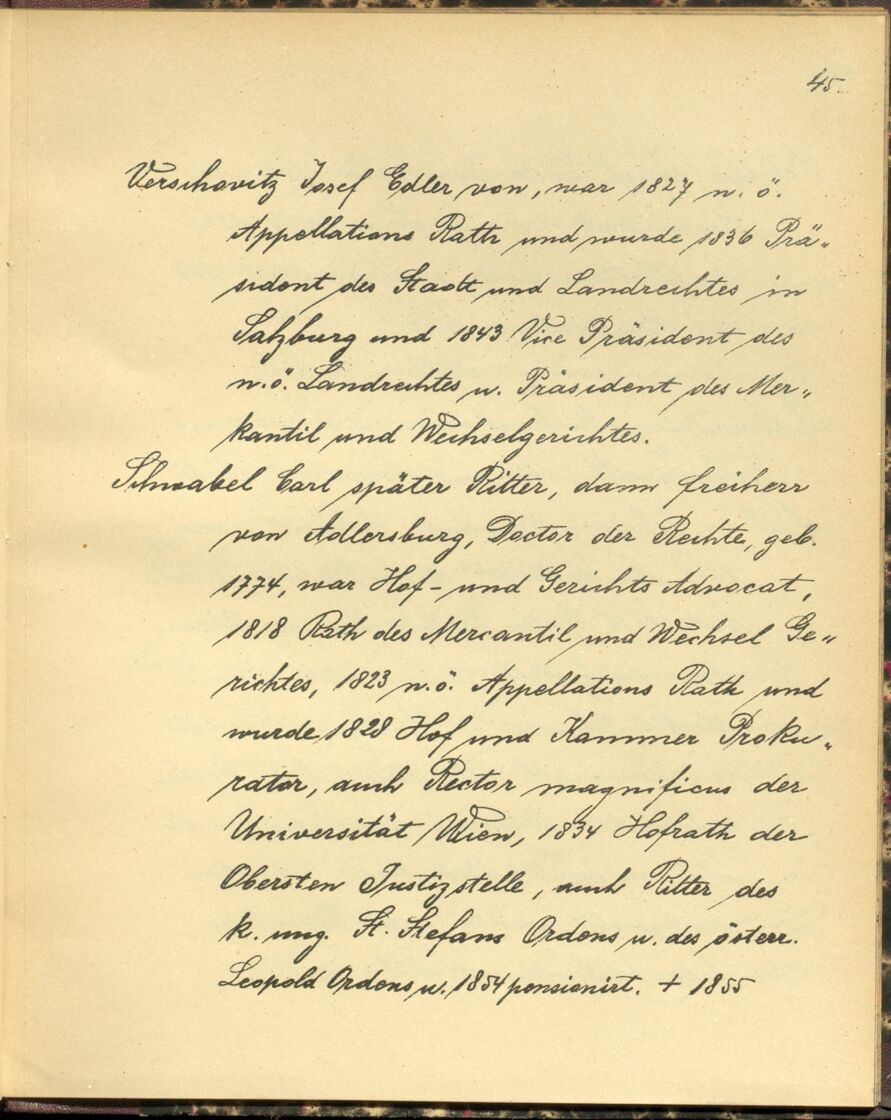 45.
Verschovitz Josef Edler von, war 1827 n. ö.
Appellations Rath und wurde 1836 Prä„
sident des Stadt und Landrechtes in
Salzburg und 1843 Vice Präsident des
n.ö. Landrechtes u. Präsident des Mer„
kantil und Wechselgerichtes.
Schnabel Carl später Ritter, dann freiherr
von Adlersburg, Doctor der Rechte, geb.
1774, war Hof- und Gerichts Advocat,
1818 Rath des Mercantil und Wechsel Ge„
richtes, 1823 n.ö. Appellations Rath und
wurde 1828 Hof und Kammer Proku„
rator, auch Rector magnificus der
Universität Wien, 1834 Hofrath der
Obersten Justizstelle, auch Ritter des
k. ung. St. Stefans Ordens u. des österr.
Leopold Ordens u. 1854 pensionirt. + 1855